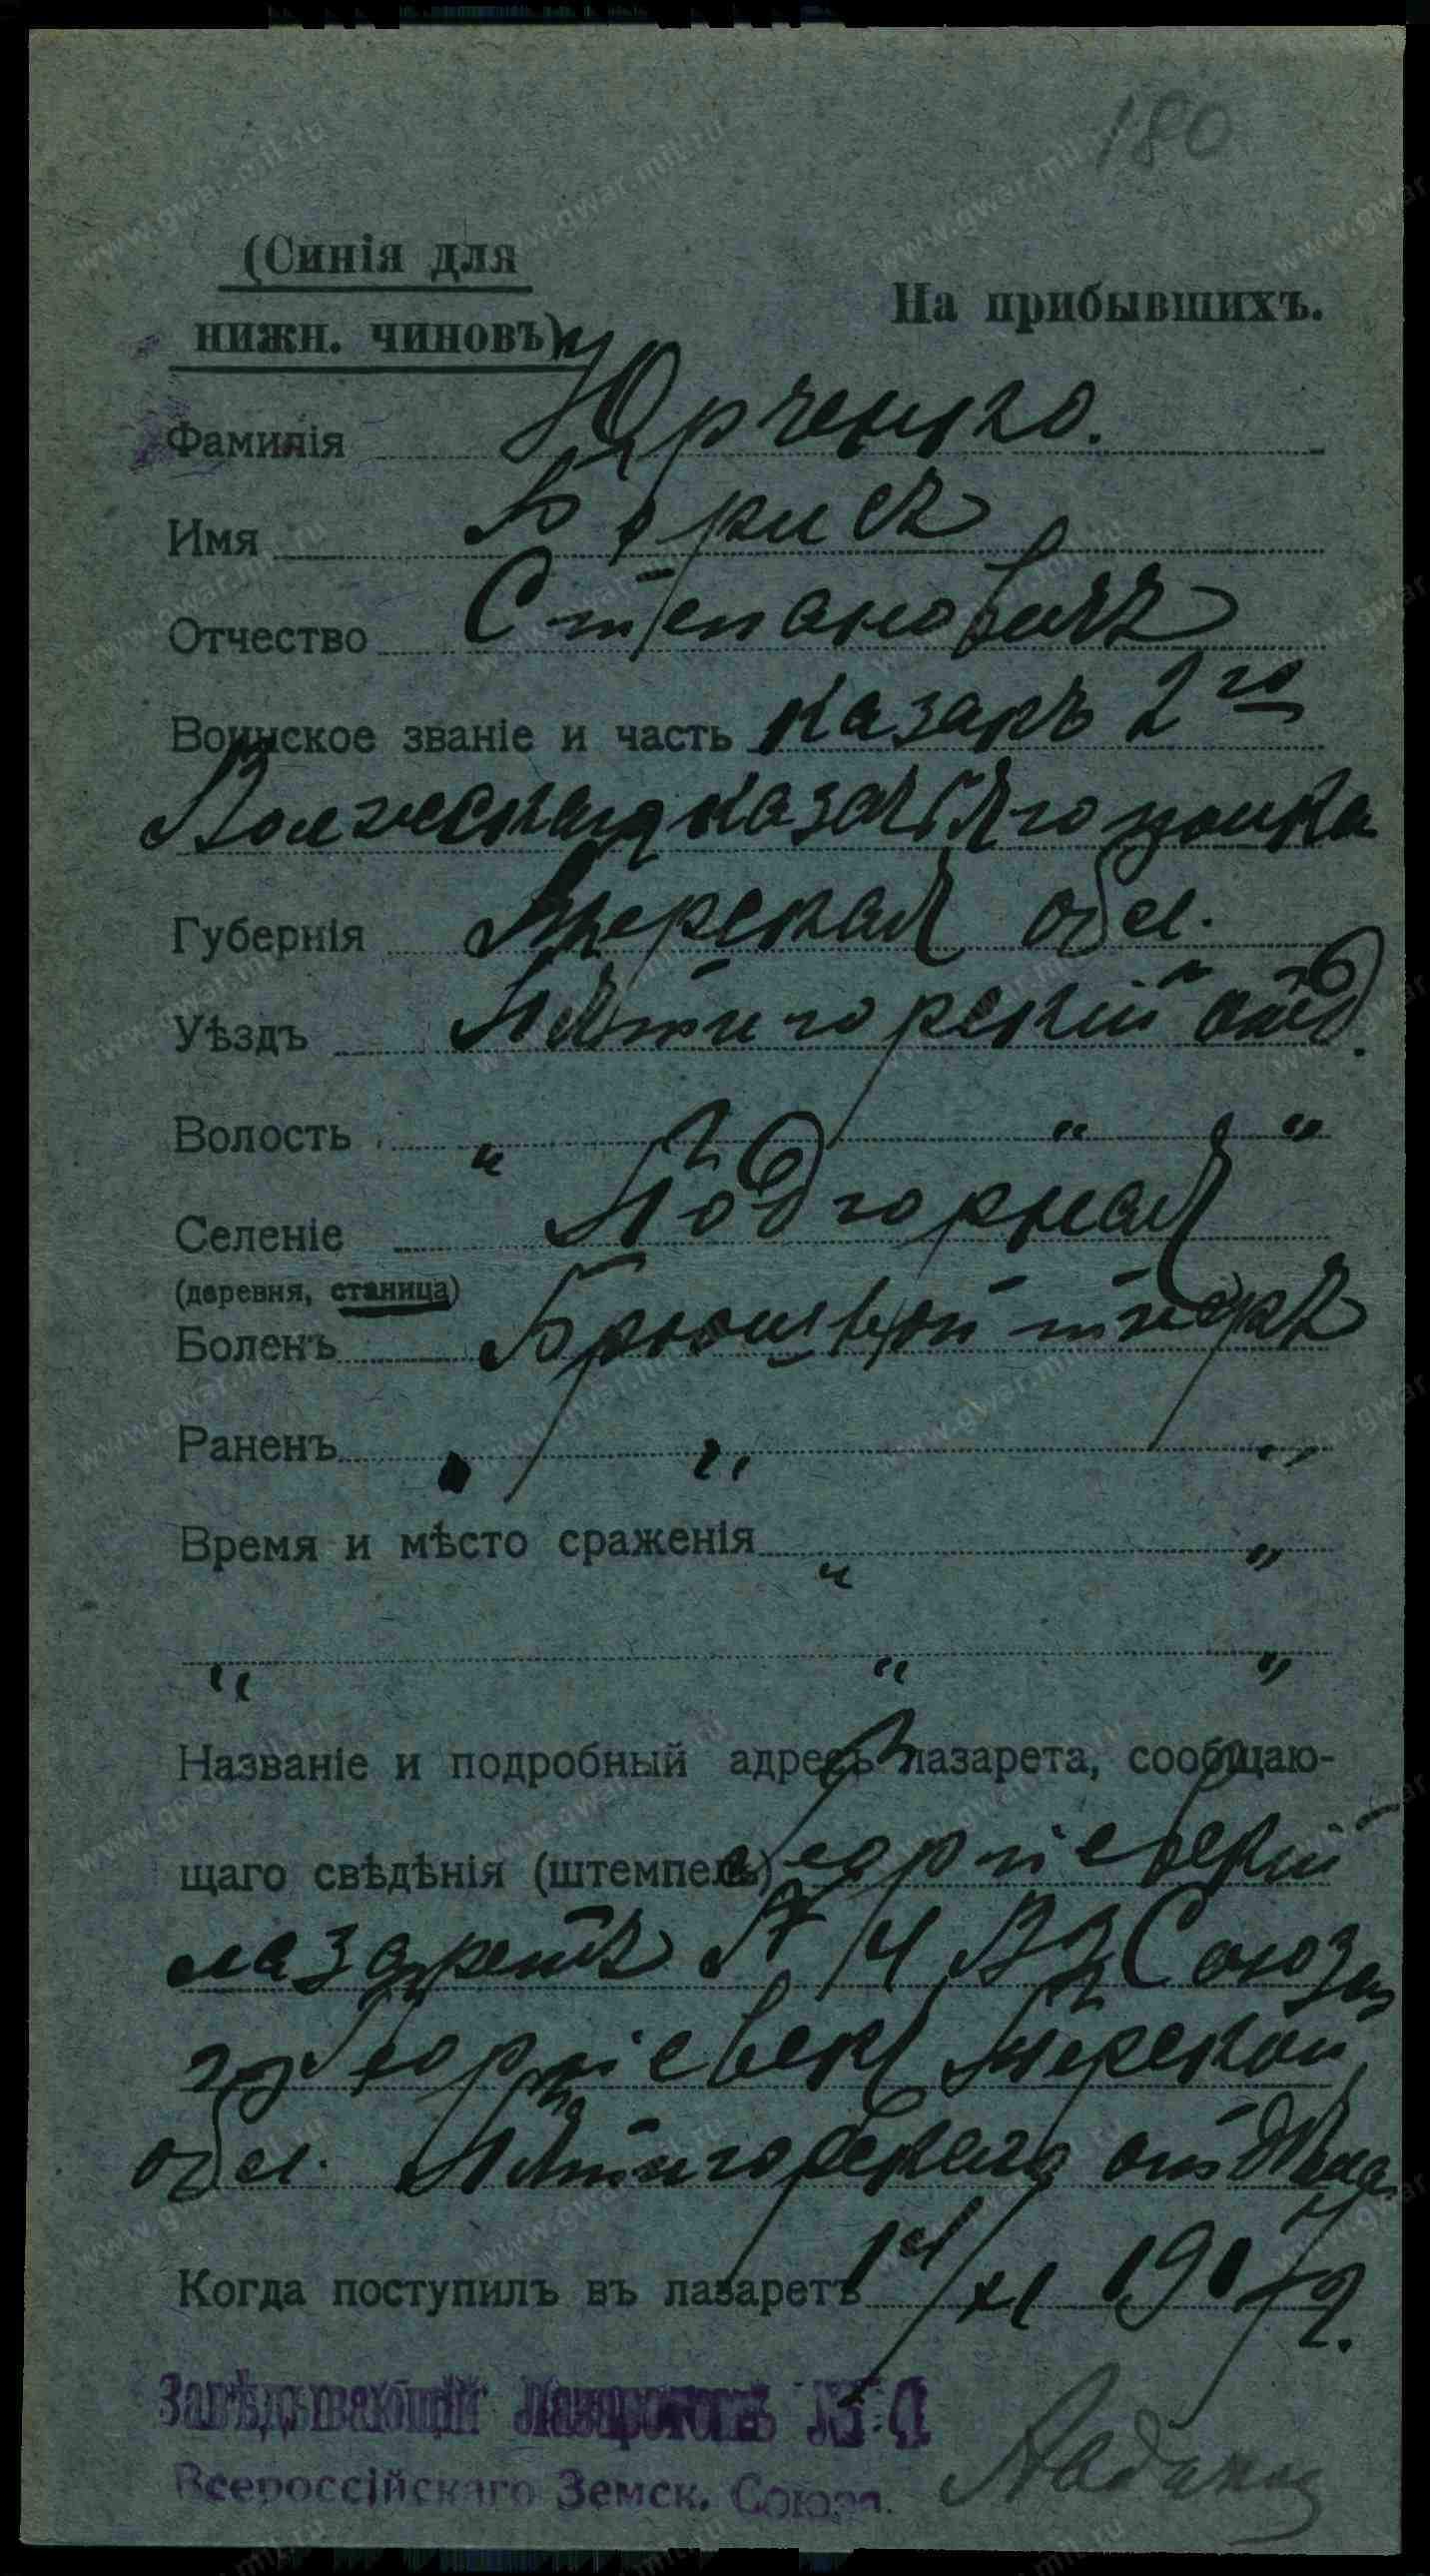 180
(Синія для
нижн. чиновъ)
На прибывшихъ.
Фамилія Юрченко.
Имя Борисъ
Отчество Степановичъ
Воинское званіе и часть казакъ 2го
Волжскаго казачьяго полка
Губернія Терская обл.
Уѣздъ Пятигорскій отд.
Волость " " "
Селеніе Подгорная
(деревня, станица)
Боленъ Брюшной тифъ
Раненъ " " "
Время и мѣсто сраженія " "
" " "
Названіе и подробный адресъ лазарета, сообщаю-
щаго свѣдѣнія (штемпель) Георгіевскій
лазаретъ № 4 В З Союза
г. Георгіевскъ Терской
обл. Пятигорскаго отдѣла
Когда поступилъ въ лазаретъ XI 191 г.
Завѣдывающій Лазаретомъ №
Всероссійскаго Земск. Союза.